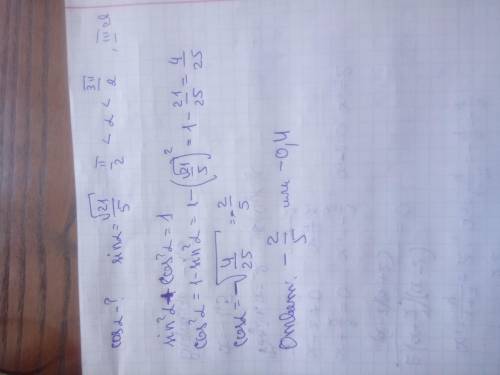 cosα-? sinα = √21/5 π/2 < α < 3π/2
sin²α + cos²α = 1
cos²α = 1 - sin²α = 1 - (√21/5)² = 1 - 21/25 = 4/25
cosα = -√4/25 = -2/5
Ответ: -2/5 или -0,4